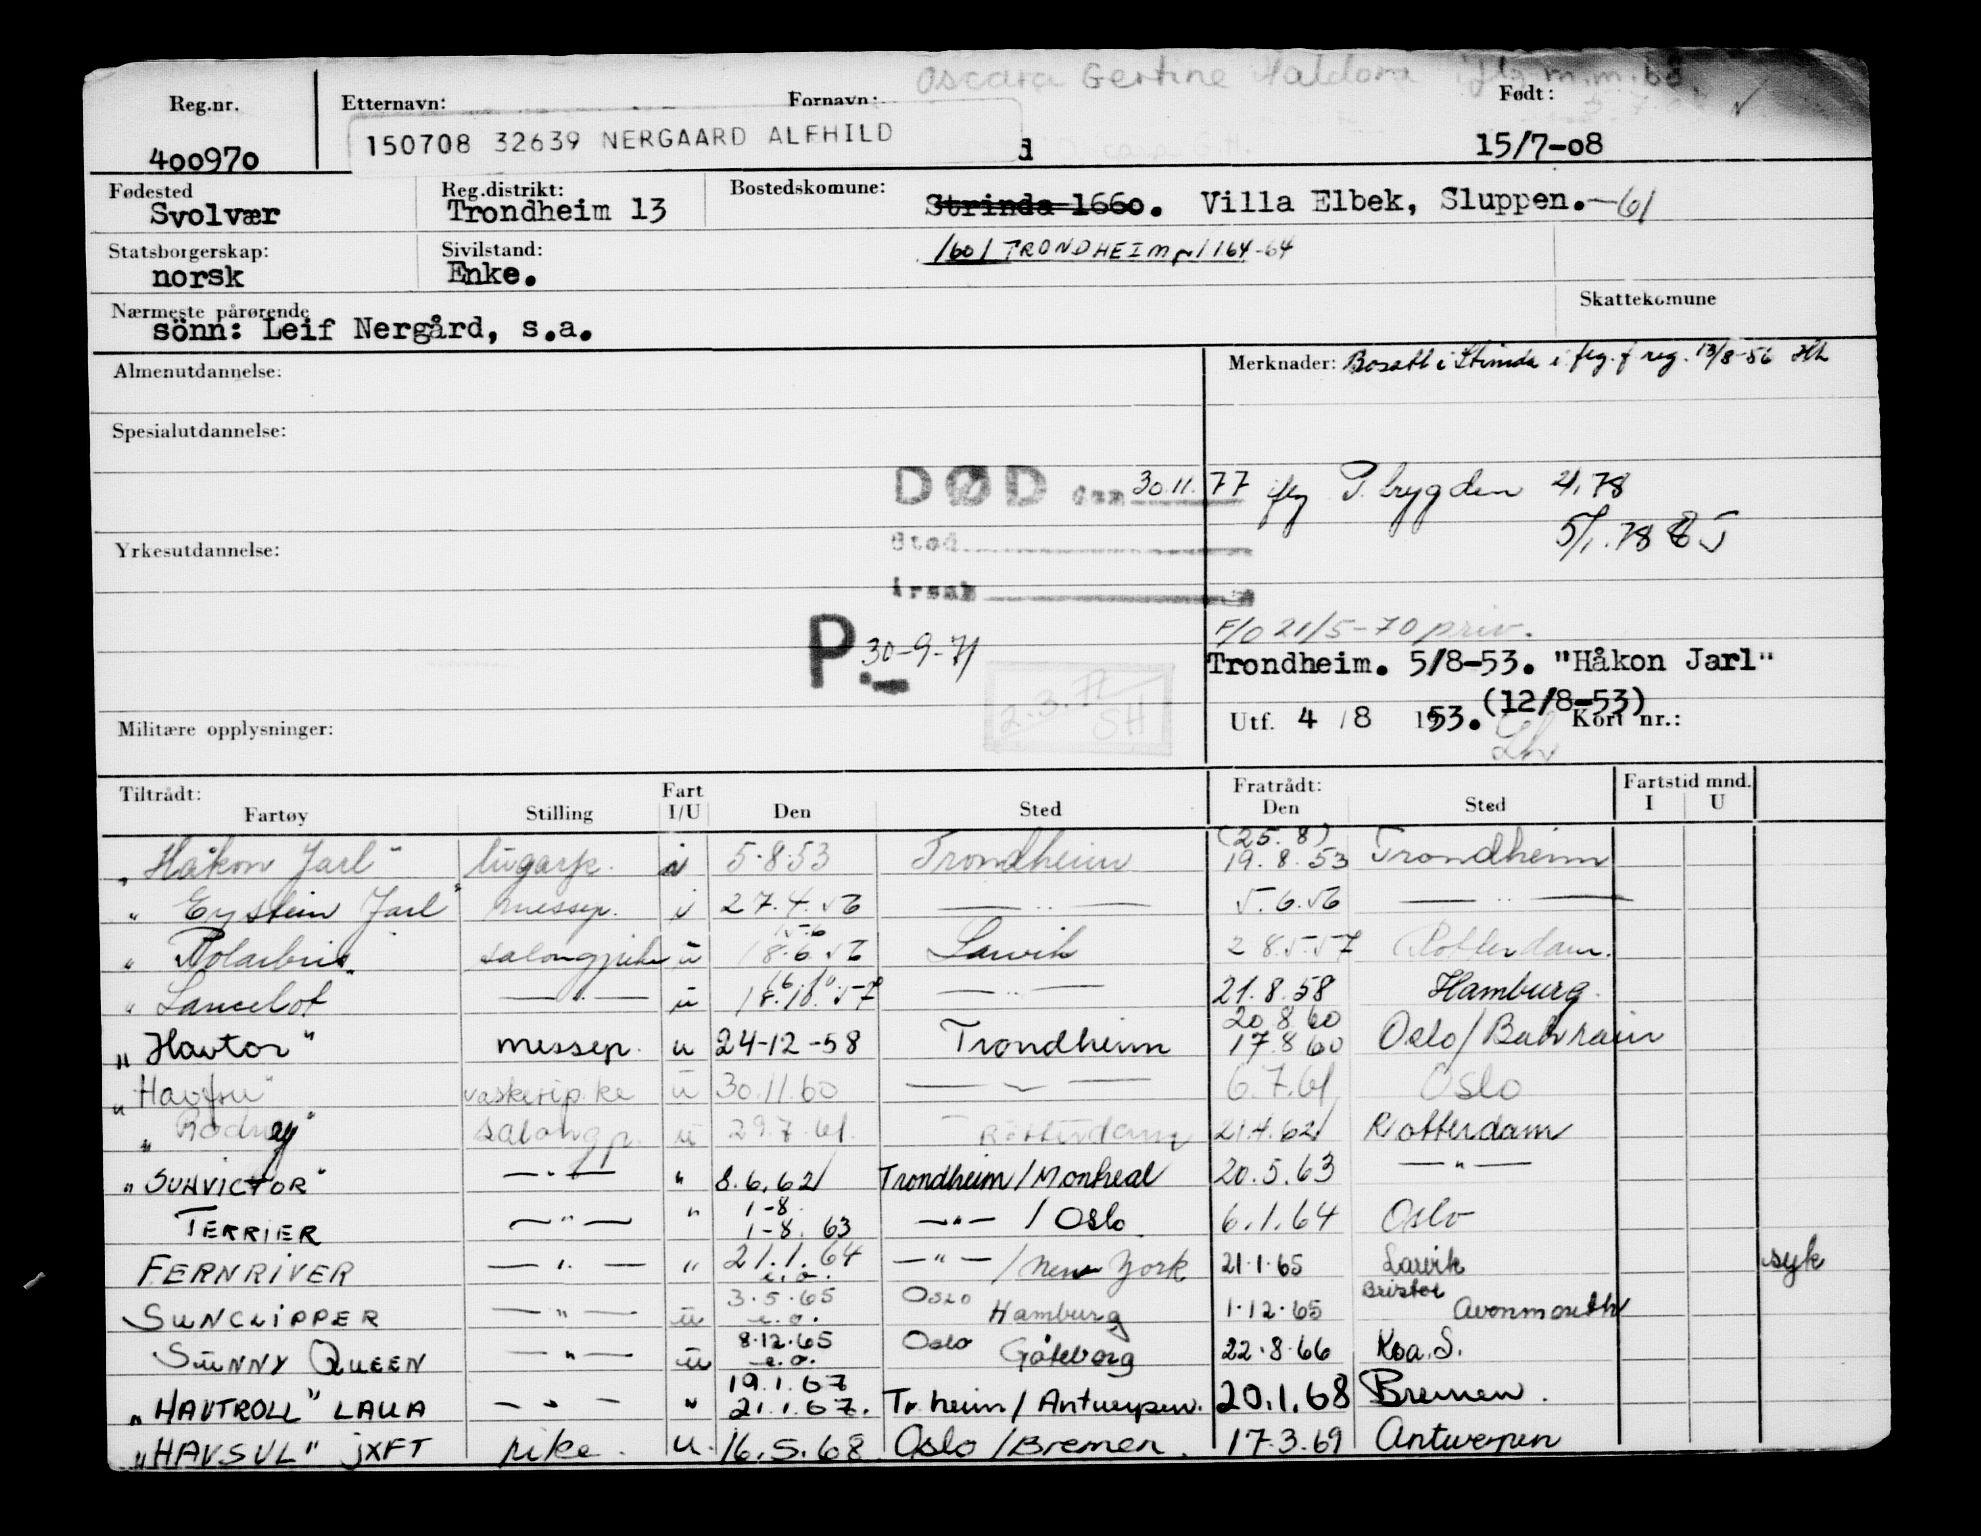 Oscara Gertine Haldora iflg. m.m. bô.
Reg.nr. Etternavn: Fornavn: Født:
400970 150708 32639 NERGAARD ALFHILD d 15/7-08
Fødested Reg.distrikt: Bostedskomune:
Svolvær Trondheim 13 Strinda 1660. Villa Elbek, Sluppen.-61
Statsborgerskap: Sivilstand: 1601 TRONDHEIM 1164-64
norsk Enke.
Nærmeste pårørende Skattekomune
sönn: Leif Nergård, s.a.
Almenutdannelse: Merknader: Bosatt i Strinda i flg. f reg. 13/8-56
Spesialutdannelse:
DØD den 30.11.77 iflg P. trygden 4/1.78
5/1.78
Yrkesutdannelse: Sted
Årsak
P. 30-9-71 F/O 21/5-70 priv.
Trondheim. 5/8-53. "Håkon Jarl"
2.3.72 SH (12/8-53)
Militære opplysninger: Utf. 4 / 8 1953. Kort nr.:
Tiltrådt: Fart Fratrådt: Fartstid mnd.
Fartøy Stilling I/U Den Sted Den Sted I U
"Håkon Jarl" lugarp. i 5.8.53 Trondheim (25.8) 19.8.53 Trondheim
" Eystein Jarl" messep. i 27.4.56 — " — 5.6.56 — " —
" Polarbris" salongpike u 15.6 18.6.56 Larvik 28.5.57 Rotterdam.
" Lancelot — " — u 16.10 18.10.57 — " — 21.8.58 Hamburg.
"Havtor" messep. u 24-12-58 Trondheim 20 8 60 17.8 60 Oslo/Bahrain
"Havfru" vaskeripike u 30.11.60 — " — 6.7.61 Oslo
"Rodney" salongp. u 29.7.61. Rotterdam 21.4.62 Rotterdam
"SUNVICTOR" — " — " 8.6.62 Trondheim/Montreal 20.5.63 — " —
TERRIER — " — " 1-8. 1-8. 63 — " — / Oslo 6.1.64 Oslo
FERNRIVER — " — " 21.1.64 e.o. — " — / New York 21.1.65 Larvik syk
SUNCLIPPER — " — u 3.5.65 e.o. Oslo Hamburg 1.12.65 Bristol Avonmouth
SUNNY QUEEN — " — u 8.12.65 e.o. Oslo Göteborg 22.8.66 Koa. S.
"HAVTROLL" LAUA — " — " 19.1.67 21.1.67. Tr.heim/Antwerpen. 20.1.68 Bremen.
"HAVSUL" JXFT pike. u. 16.5.68 Oslo/Bremen. 17.3.69 Antwerpen